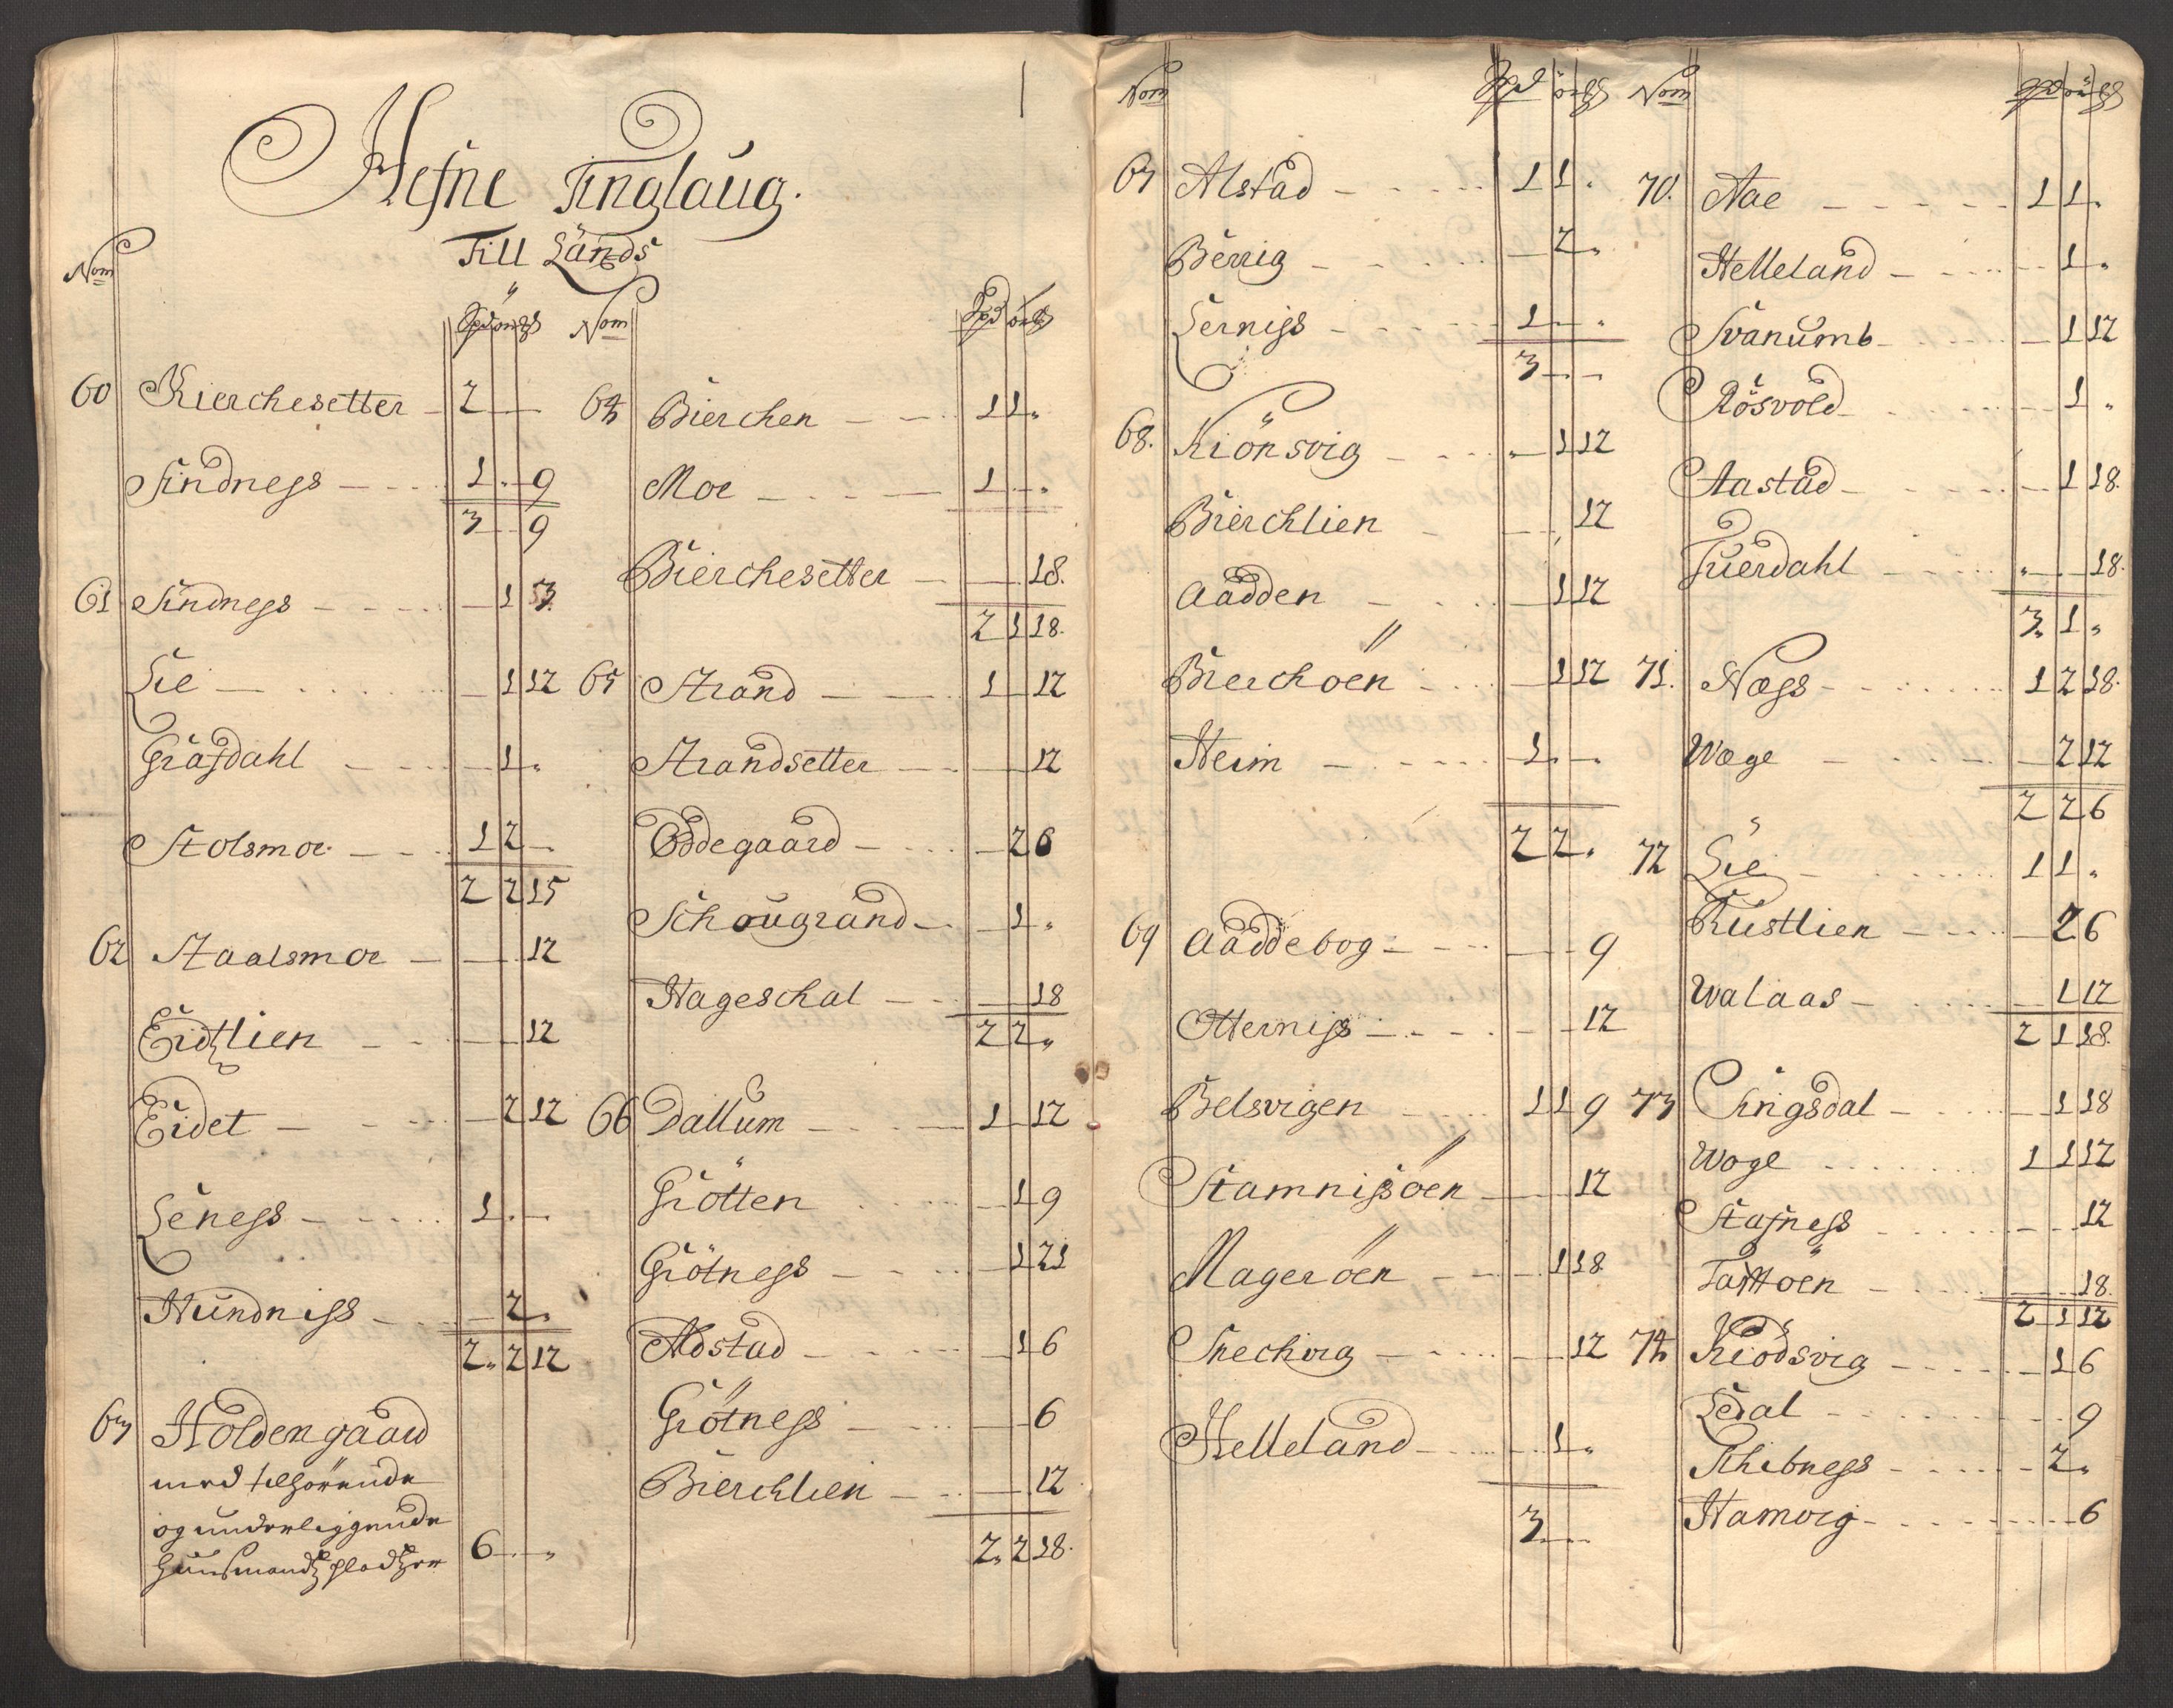 Hefne Tinglaug.
Till Lands
Nom
Spd ör ml
60 Kierchesetter 2 — —
Findness — 1 - 9
3 - 9
61 Findness — 1 3
Lie — 1 12
Grafdahl — 1 -
Stolsmoe — 1 2 —
2 2 15
62 Staalsmoe — 12
Eidtlien — 12
Eidet — 2 12
Leness — 1 - —
Hundniss — 2 -
2 2 12
63 Holdengaard
med tilhörende
og underliggende
huusmandtz pladtzer 6 - -
Nom Spd ör ml
64 Bierchen — 1 1 -
Moe — 1 - -
Bierchesetter — 18.
2 1 18.
65 Strand — 1 - 12
Strandsetter — 12
Ödegaard — 2 6
Schougrand — 1 -
Hageschal — 18
2 2 -
66 Dallum — 1 - 12
Grötten — 1 9
Grötness — 1 21
Aldstad — 1 6
Grötness — 6
Bierchlien — 12
2. 2 18.
Nom Spd ör ml
67 Alstad — 1 1 -
Berrig — 2 -
Lerniss — 1 - -
3 - -
68. Kiönsvig — 1 12
Bierchlien — 12
Aadden — 1 12
Bierchöen — 1 12
Heim — 1 - -
2 2 -
69 Aaddebog — 9
Otterniss — 12
Belsvigen — 1 1 9
Stamnissöen — 12
Mageröen — 1 18
Snechvig — 12
Helleland — 1 -
3 - -
Nom Spd ör ml
70. Aae — 1 1 -
Helleland — 1 -
Svanumb — 1 12
Rösvold — 1 -
Aastad — 1 18.
Tuerdahl — 18.
3. 1 -
71. Næss — 1 2 18.
Wæge — 2 12
2 2 6
72 Lie — 1 1 -
Rustlien — 2 6
Walaas — 1 12
2 1 18.
73 Singsdal — 1 18
Woge — 1 1 12
Stafness — 12
Taftöen — 18.
2 1 12
74 Kiödsvig — 1 6
Ledal — 9
Schibness — 2 -
Hamvig — 6